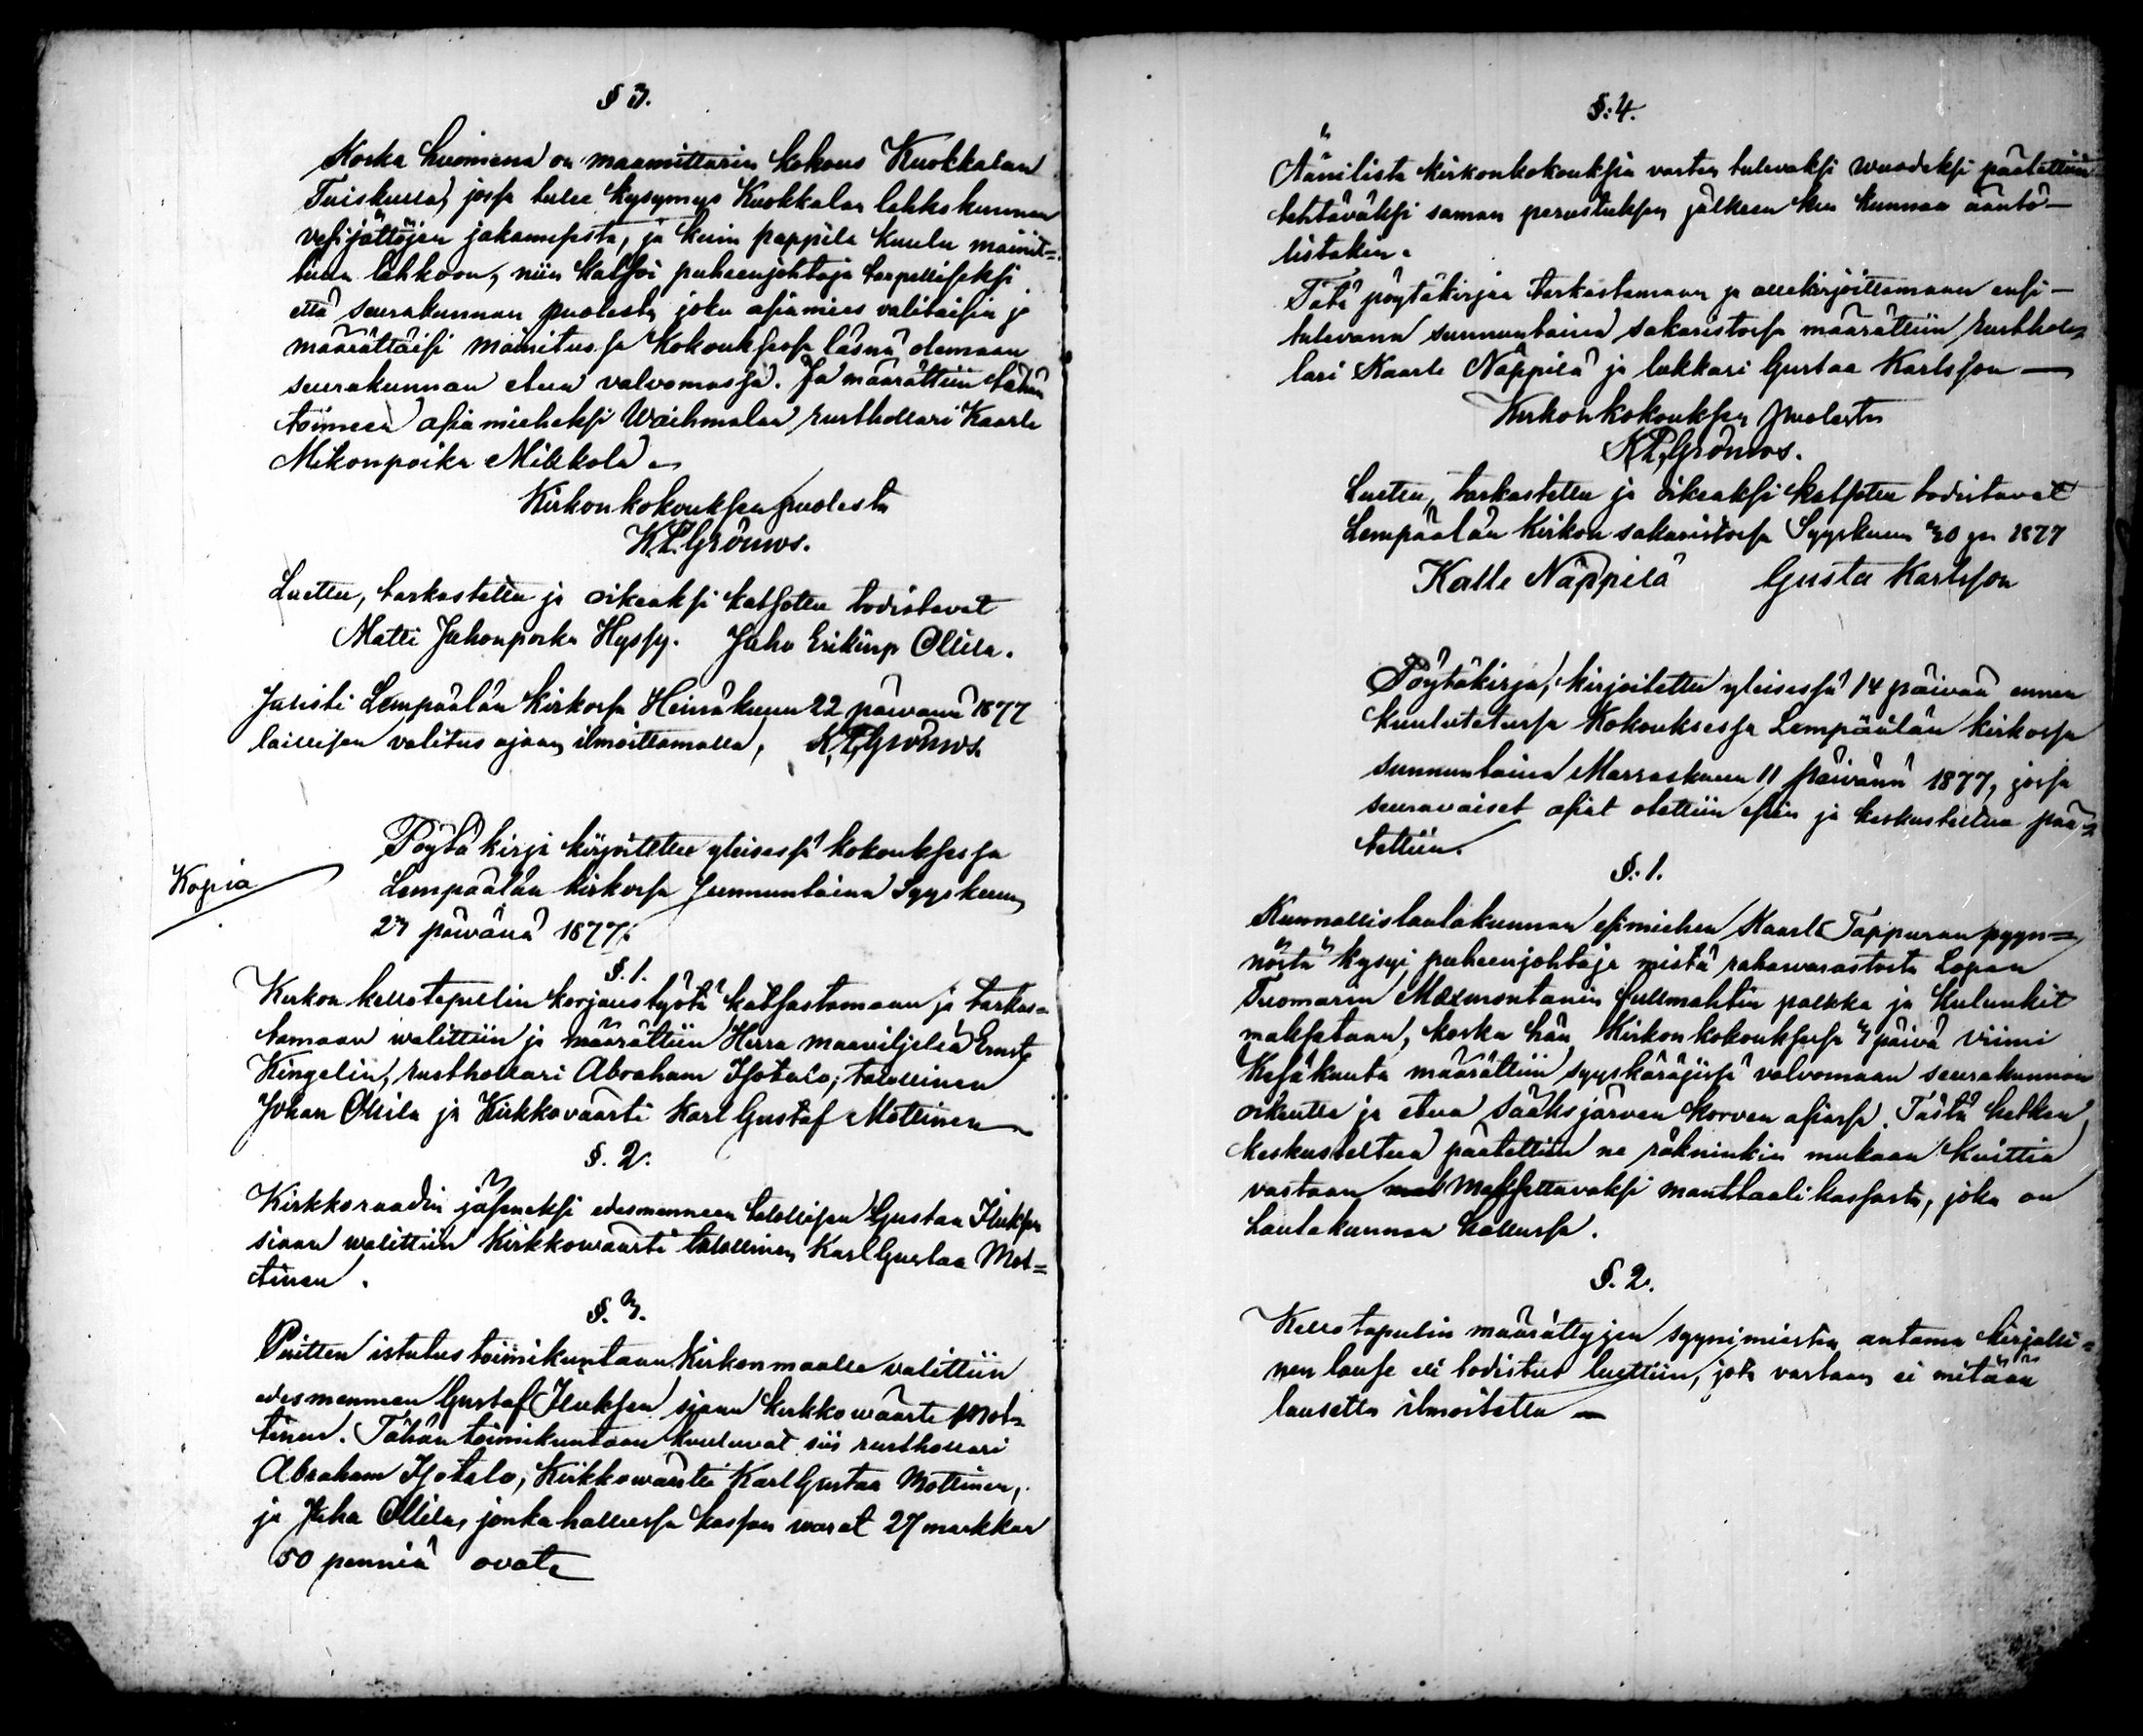 § 3.
Koska huomena on maamittarin kokous Kuokkalan
Tuiskulla, jossa tulee kysymys Kuokkalan lahkokunnan
vesijättöjen jakamisesta, ja kuin pappila kuuluu mainit=
tuun lahkoon, niin katsoi puheenjohtaja tarpelliseksi
että seurakunnan puolesta joku asiamies valitaisiin ja
määrättäisi mainitussa Kokouksessa läsnä olemaan
seurakunnan etua valvomassa. Ja määrättiin tähän
toimeen asiamieheksi Waihmalan rusthollari Kaarle
Mikonpoika Mikkola.—
Kirkonkokouksen puolesta
K.P. Grönvos.
Luettu, tarkastettu ja oikeaksi katsottu todistavat
Matti Juhonpoika Hyssy. Juho Erikinp Ollila.
Julisti Lempäälän kirkossa Heinäkuun 22 päivänä 1877
laillisen valitus ajan ilmoittamalla, K.P. Grönvos.
Kopia
Pöytäkirja kirjoitettu yleisessä kokouksessa
Lempäälän kirkossa Sunnuntaina Syyskuun
23 päivänä 1877.
§. 1.
Kirkon kellotapullin korjaustyötä katsastamaan ja tarkas=
tamaan walittiin ja määrättiin Herra maaviljeliä Ernst
Kingelin, rusthollari Abraham Isotalo, talollinen
Johan Ollila ja Kirkkoväärti Karl Gustaf Mottinen—
§. 2.
Kirkkoraadin jäseneksi edesmenneen talollisen Gustaa Iluksen
sijaan walittiin Kirkkowäärti talollinen Karl Gustaa Mot=
tinen.
§. 3.
Puitten istutus toimikuntaan Kirkonmaalle valittiin
edesmenneen Gustaf Iluksen sijaan kirkkowäärti Mot=
tinen. Tähän toimikuntaan kuuluvat siis rusthollari
Abraham Isotalo, Kirkkowäärti Karl Gustaa Mottinen,
ja Juha Ollila, jonka hallussa kassan warat 27 markkaa
50 penniä ovat—
§: 4.
Äänilista kirkonkokouksia varten tulevaksi wuodeksi päätettiin
tehtäväksi saman perustuksen jälkeen kuu kunnan ääntö—
listakin.
Tätä pöytäkirjaa tarkastamaan ja allekirjoittamaan ensi—
tulevana sunnuntaina sakaristossa määrättiin rusthol=
lari Kaarle Näppilä ja lukkari Gustaa Karlsson—
Kirkonkokouksen puolesta
K.P. Grönvos.
Luettu, tarkastettu ja oikeaksi katsottu todistavat
Lempäälän Kirkon sakaristossa Syyskuun 30 pn 1877
Kalle Näppilä Gusta Karlsson
Pöytäkirja, kirjoitettu yleisessä 14 päivää ennen
kuulutetussa Kokouksessa Lempäälän kirkossa
sunnuntaina Marraskuun 11 päivänä 1877, jossa
seuravaiset asiat otettiin esiin ja keskusteltua pää=
tettiin.
§: 1.
Kunnallislautakunnan esimiehen Kaarle Tappuran pyyn=
nöstä kysyi puheenjohtaja mistä rahawarastosta Lopan
Tuomarin Maxmontanin fullmahtin palkka ja Kulunkit
maksetaan, koska hän Kirkonkokouksessa 3 päivä viimi
Kesäkuuta määrättiin syyskäräjissä valvomaan seurakunnan
oikeutta ja etua Sääksjärven korven asiassa. Tästä hetken
keskusteltua päätettiin ne räkninkin mukaan kuittia
vastaan maksettavaksi manttaalikassasta, joka on
Lautakunnan hallussa.
§. 2.
Kellotapulin määrättyjen syynimiesten antama kirjalli=
nen lause eli todistus luettiin, jota vastaan ei mitään
lausetta ilmoitettu —